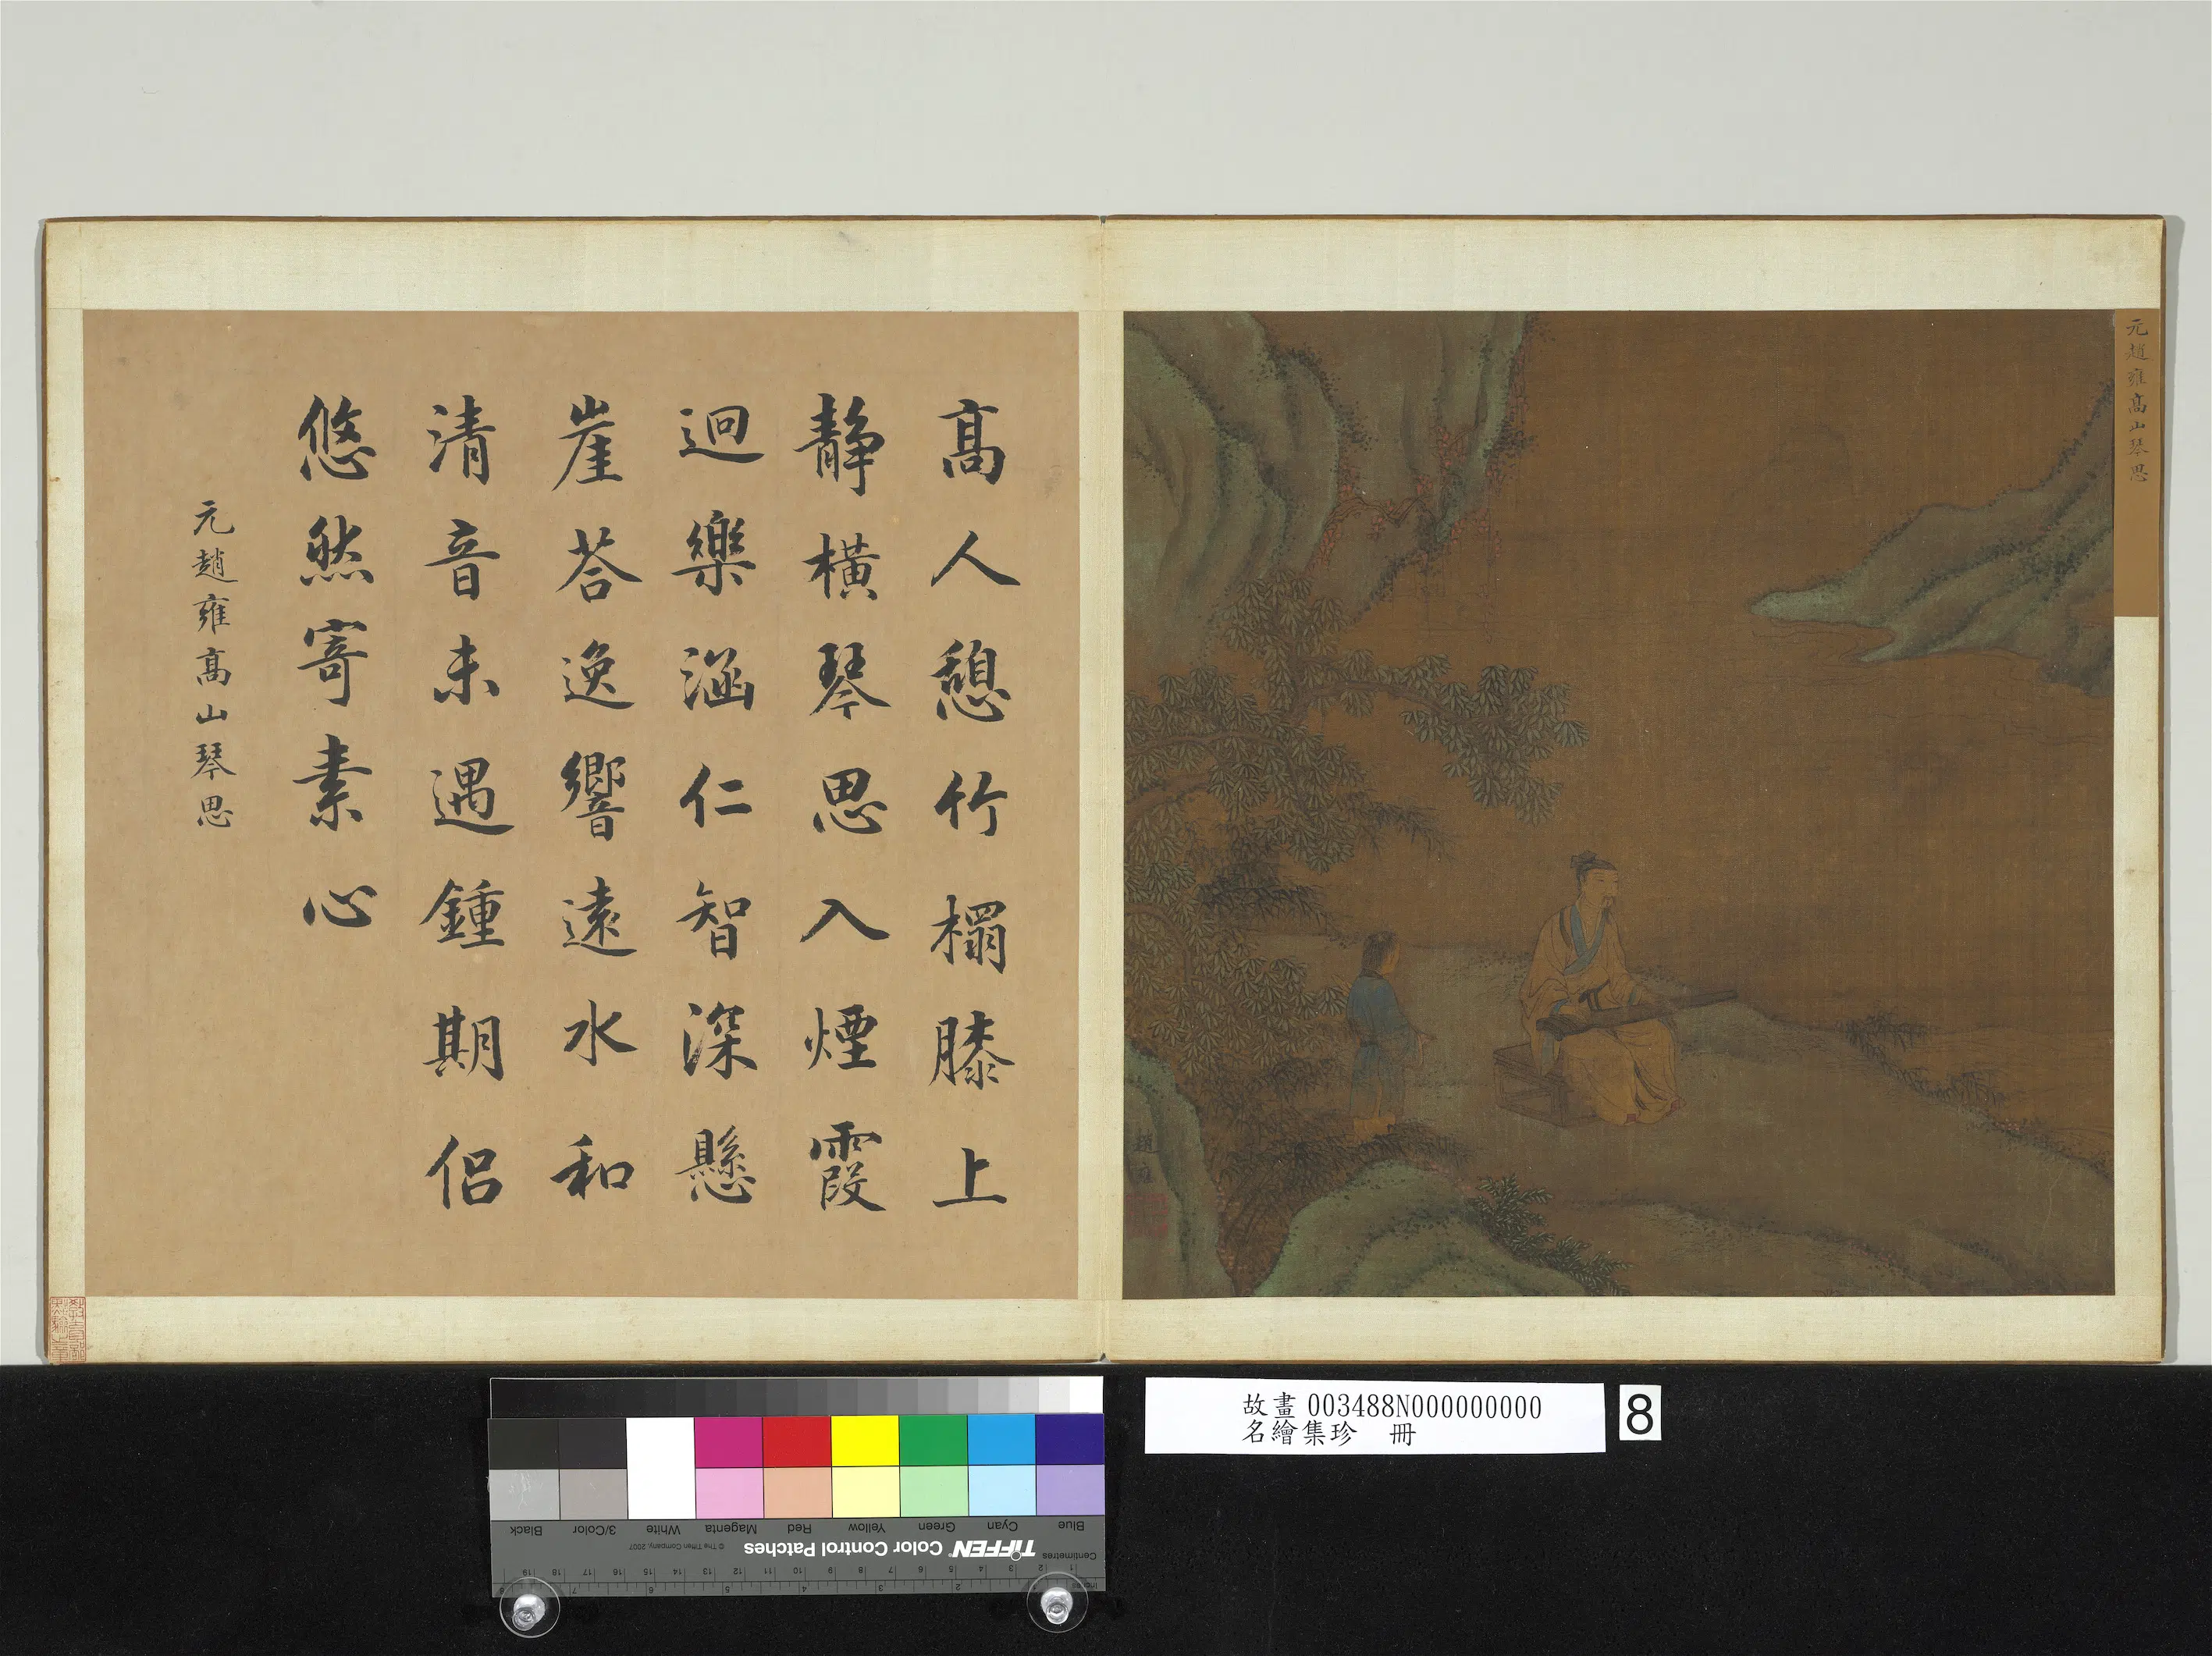 元趙雍高山琴思
高人憩竹榻膝上
靜橫琴思入煙霞
迥樂涵仁智深懸
崖荅逸響遠水和
清音未遇鍾期侶
悠然寄素心
元趙雍高山琴思
故畫 003488N000000000
名繪集珍 冊
8
Black
3/Color
White
Magenta
Red
Yellow
Green
Cyan
Blue
TIFFEN Color Control Patches
© The Tiffen Company, 2007
Centimetres
Inches